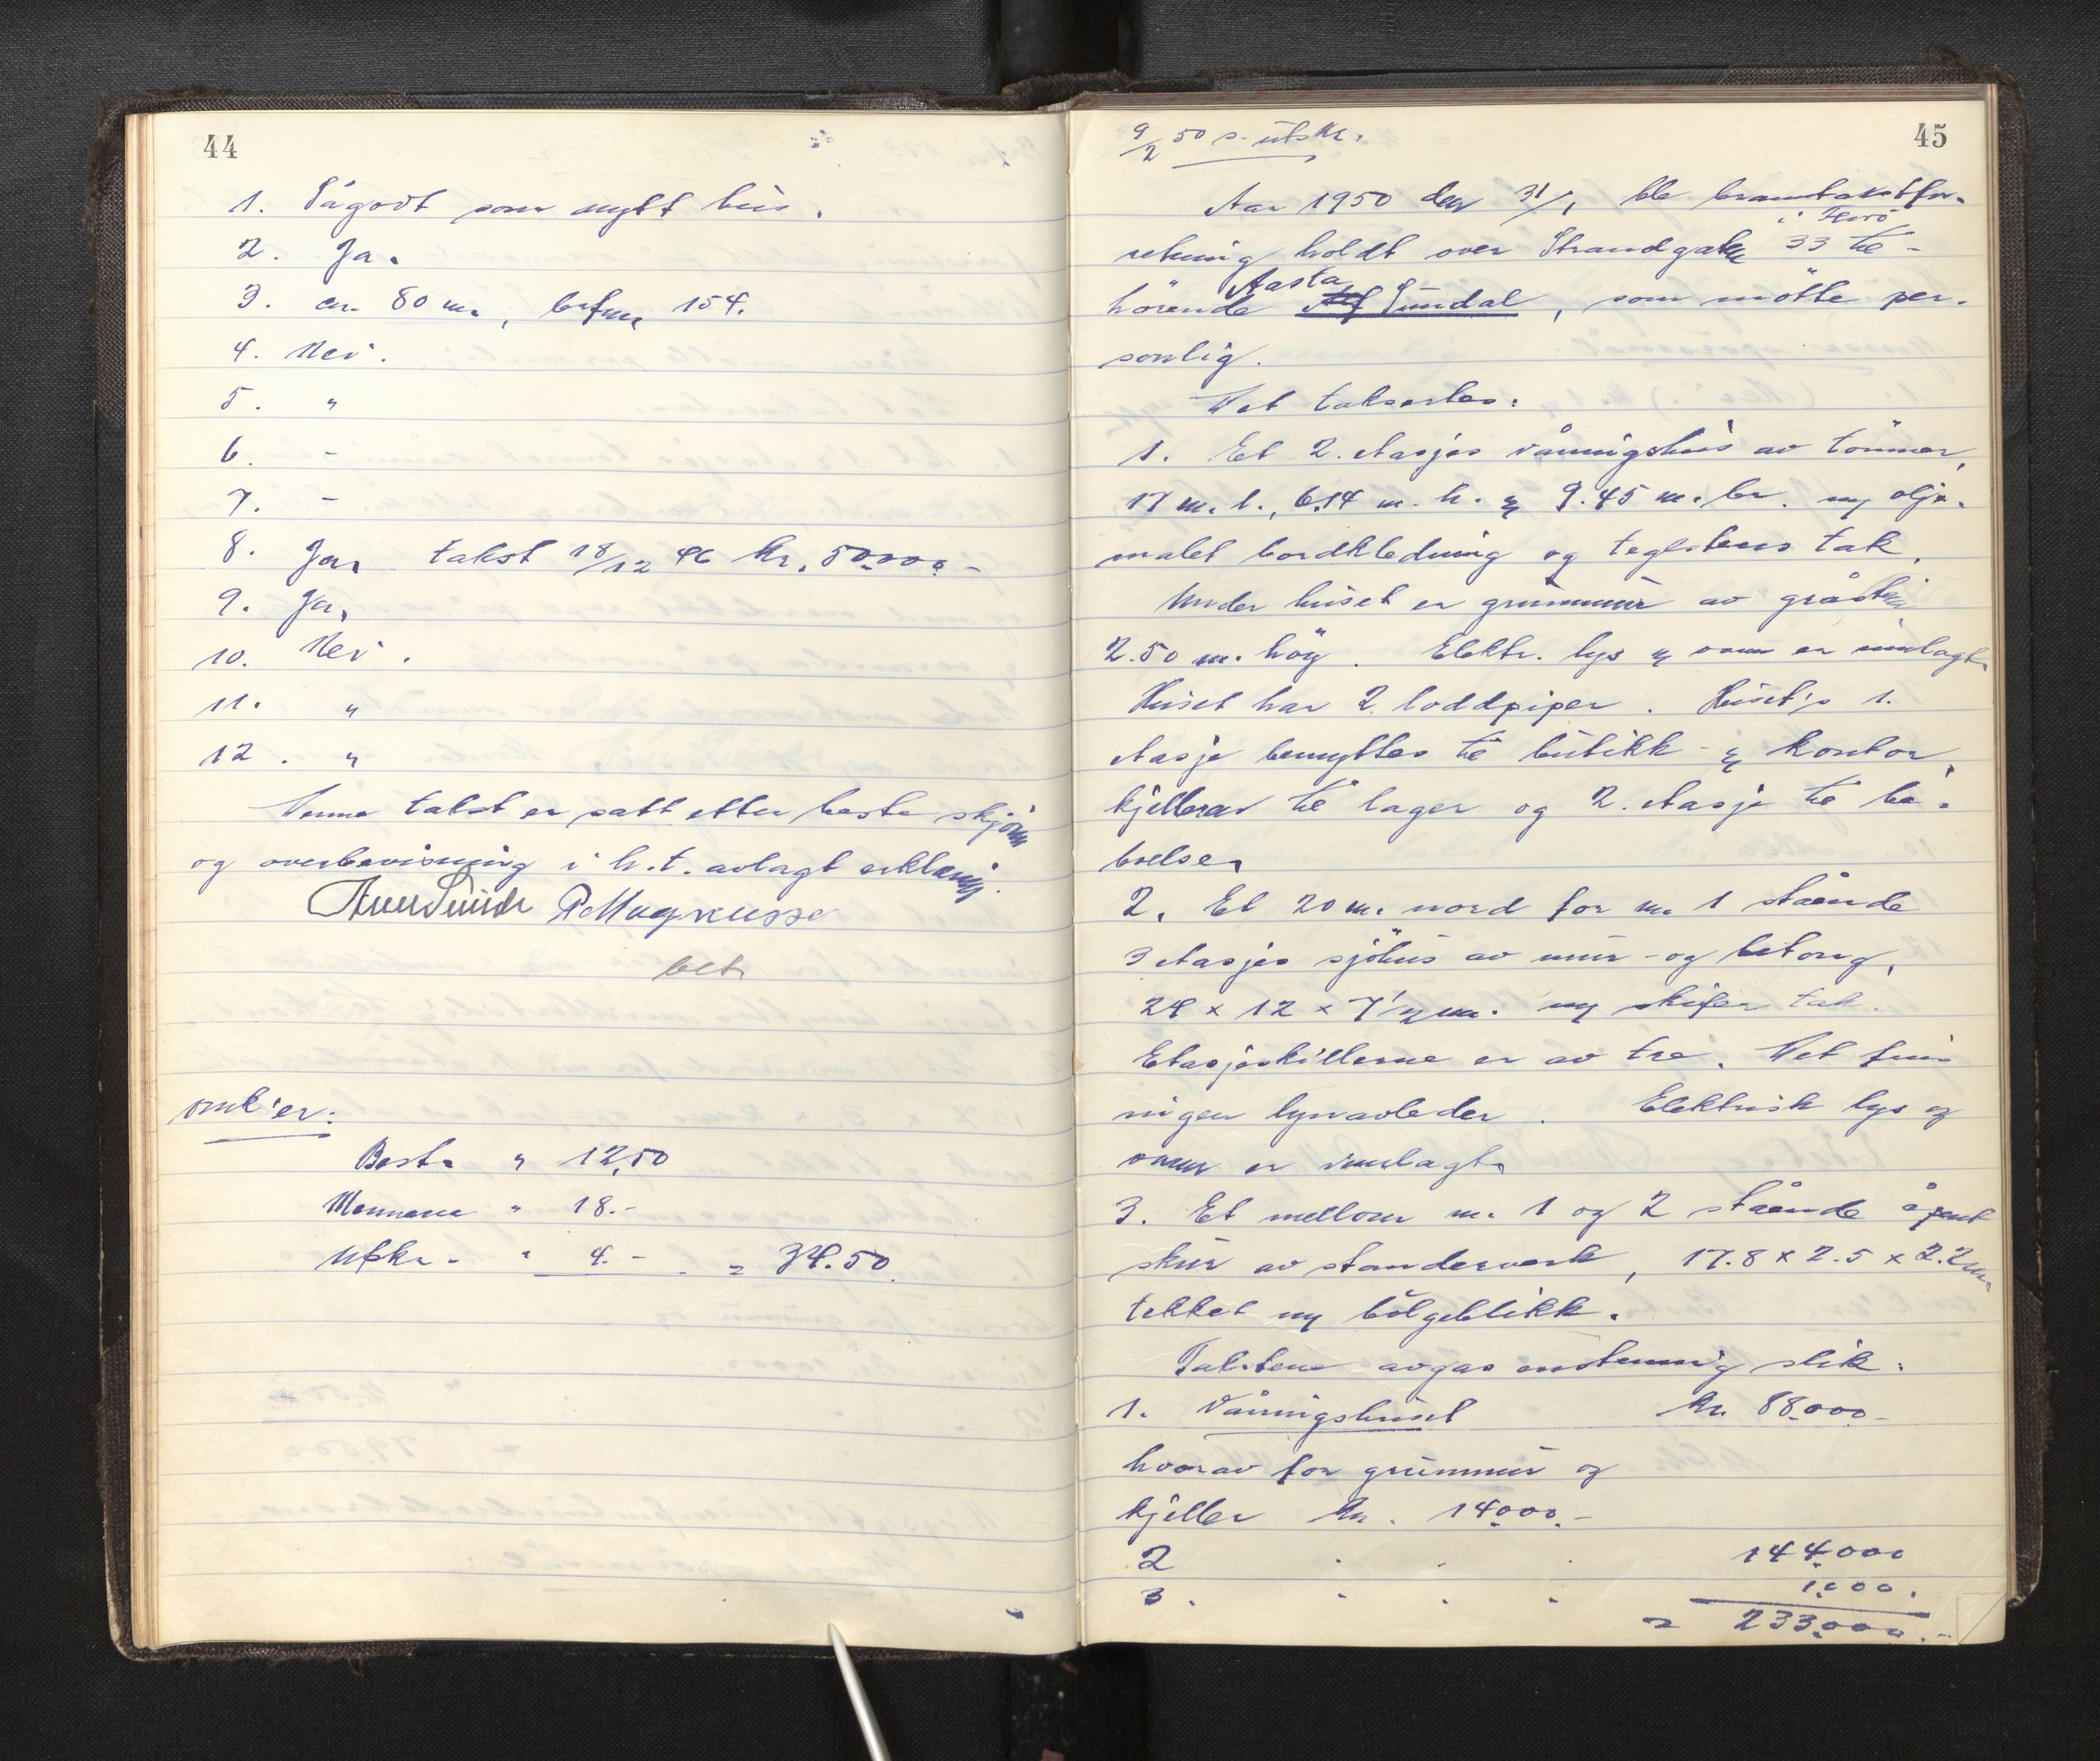 44
1. Sågodt som nytt hus.
2. Ja.
3. ca. 80 m., 154.
4. Nei.
5. "
6. -
7. -
8. Ja, takst 18/12 46 kr. 50.000.-
9. Ja,
10. Nei.
11. "
12. "
Denne takst er satt etter beste skjønn
og overbevisning i h.t. avlagt erklæring.
bet.
omk'er:
Best. " 12,50
Mennene " 18.-
Utskr. " 4.- = 34.50.
45
9/2 50 s. utskr.
Aar 1950 den 31/1 ble branntakstfor-
i Florö
retning holdt over Strandgaten 33 til-
Aasta
hörende Sundal, som mötte per-
sonlig.
Det takseres:
1. Et 2. etasjes våningshus av tömmer,
17 m. l., 6.14 m. h. og 9.45 m. br. m/ olje-
malet bordkledning og teglstens tak.
Under huset er grunnmur av gråsten
2.50 m. höy. Elektr. lys og vann er innlagt.
Huset har 2 loddpiper. Huset's 1.
etasje benyttes til butikk- og kontor,
kjelleren til lager og 2. etasje til be-
boelse.
2. Et 20 m. nord for nr. 1 stående
3 etasjes sjöhus av mur- og betong,
24 x 12 x 7 1/2 m. m/ skifer tak.
Etasjeskillerne er av tre. Det fins
ingen lynavleder. Elektrisk lys og
vann er innlagt.
3. Et mellom nr. 1 og 2 stående åpent
skur av standerverk, 17.8 x 2.5 x 2.2 m.
tekket m/ bölgeblikk.
Takstene avgaes enstemmig slik:
1. Våningshuset kr. 88.000.-
hvorav for grunnmur og
kjeller kr. 14.000.-
2 . . . 144.000
3. . . . 1.000.
= 233.000.-